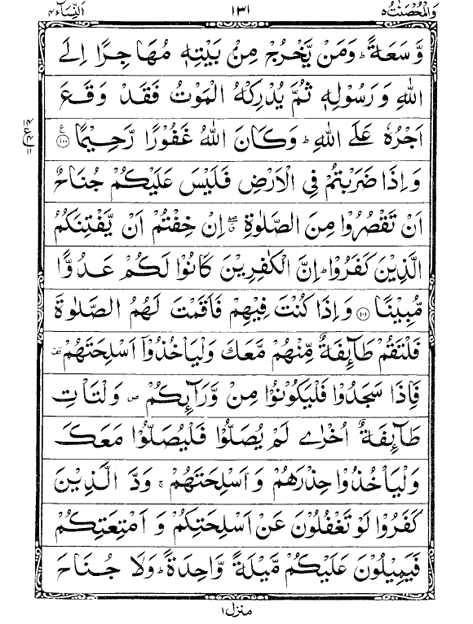 وَالْمُحْصَنٰتُ ٥ ١٣١ النِّسَآء ٤
وَّسَعَةً ؕ وَمَنْ يَّخْرُجْ مِنْۢ بَيْتِهٖ مُهَاجِرًا اِلَى
اللّٰهِ وَرَسُوْلِهٖ ثُمَّ يُدْرِكْهُ الْمَوْتُ فَقَدْ وَقَعَ
اَجْرُهٗ عَلَى اللّٰهِ ؕ وَكَانَ اللّٰهُ غَفُوْرًا رَّحِيْمًا ۝١٠٠
وَاِذَا ضَرَبْتُمْ فِى الْاَرْضِ فَلَيْسَ عَلَيْكُمْ جُنَاحٌ
اَنْ تَقْصُرُوْا مِنَ الصَّلٰوةِ ۖ اِنْ خِفْتُمْ اَنْ يَّفْتِنَكُمُ
الَّذِيْنَ كَفَرُوْا ؕ اِنَّ الْكٰفِرِيْنَ كَانُوْا لَكُمْ عَدُوًّا
مُّبِيْنًا ۝١٠١ وَاِذَا كُنْتَ فِيْهِمْ فَاَقَمْتَ لَهُمُ الصَّلٰوةَ
فَلْتَقُمْ طَآئِفَةٌ مِّنْهُمْ مَّعَكَ وَلْيَاْخُذُوْۤا اَسْلِحَتَهُمْ
فَاِذَا سَجَدُوْا فَلْيَكُوْنُوْا مِنْ وَّرَآئِكُمْ ۪ وَلْتَاْتِ
طَآئِفَةٌ اُخْرٰى لَمْ يُصَلُّوْا فَلْيُصَلُّوْا مَعَكَ
وَلْيَاْخُذُوْا حِذْرَهُمْ وَاَسْلِحَتَهُمْ ۚ وَدَّ الَّذِيْنَ
كَفَرُوْا لَوْ تَغْفُلُوْنَ عَنْ اَسْلِحَتِكُمْ وَاَمْتِعَتِكُمْ
فَيَمِيْلُوْنَ عَلَيْكُمْ مَّيْلَةً وَّاحِدَةً ؕ وَلَا جُنَاحَ
منزل ١